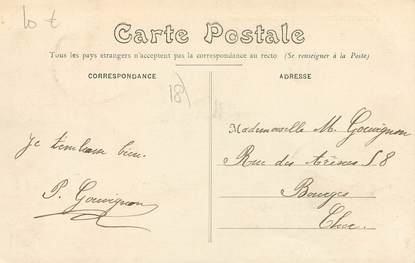 10 t
Carte Postale
Tous les pays étrangers n'acceptent pas la correspondance au recto (Se renseigner à la Poste)
CORRESPONDANCE
18)
Je t'embrasse bien.
P. Gouvignon
ADRESSE
Mademoiselle M. Gouvignon
Rue des Arènes 58
Bourges
Cher